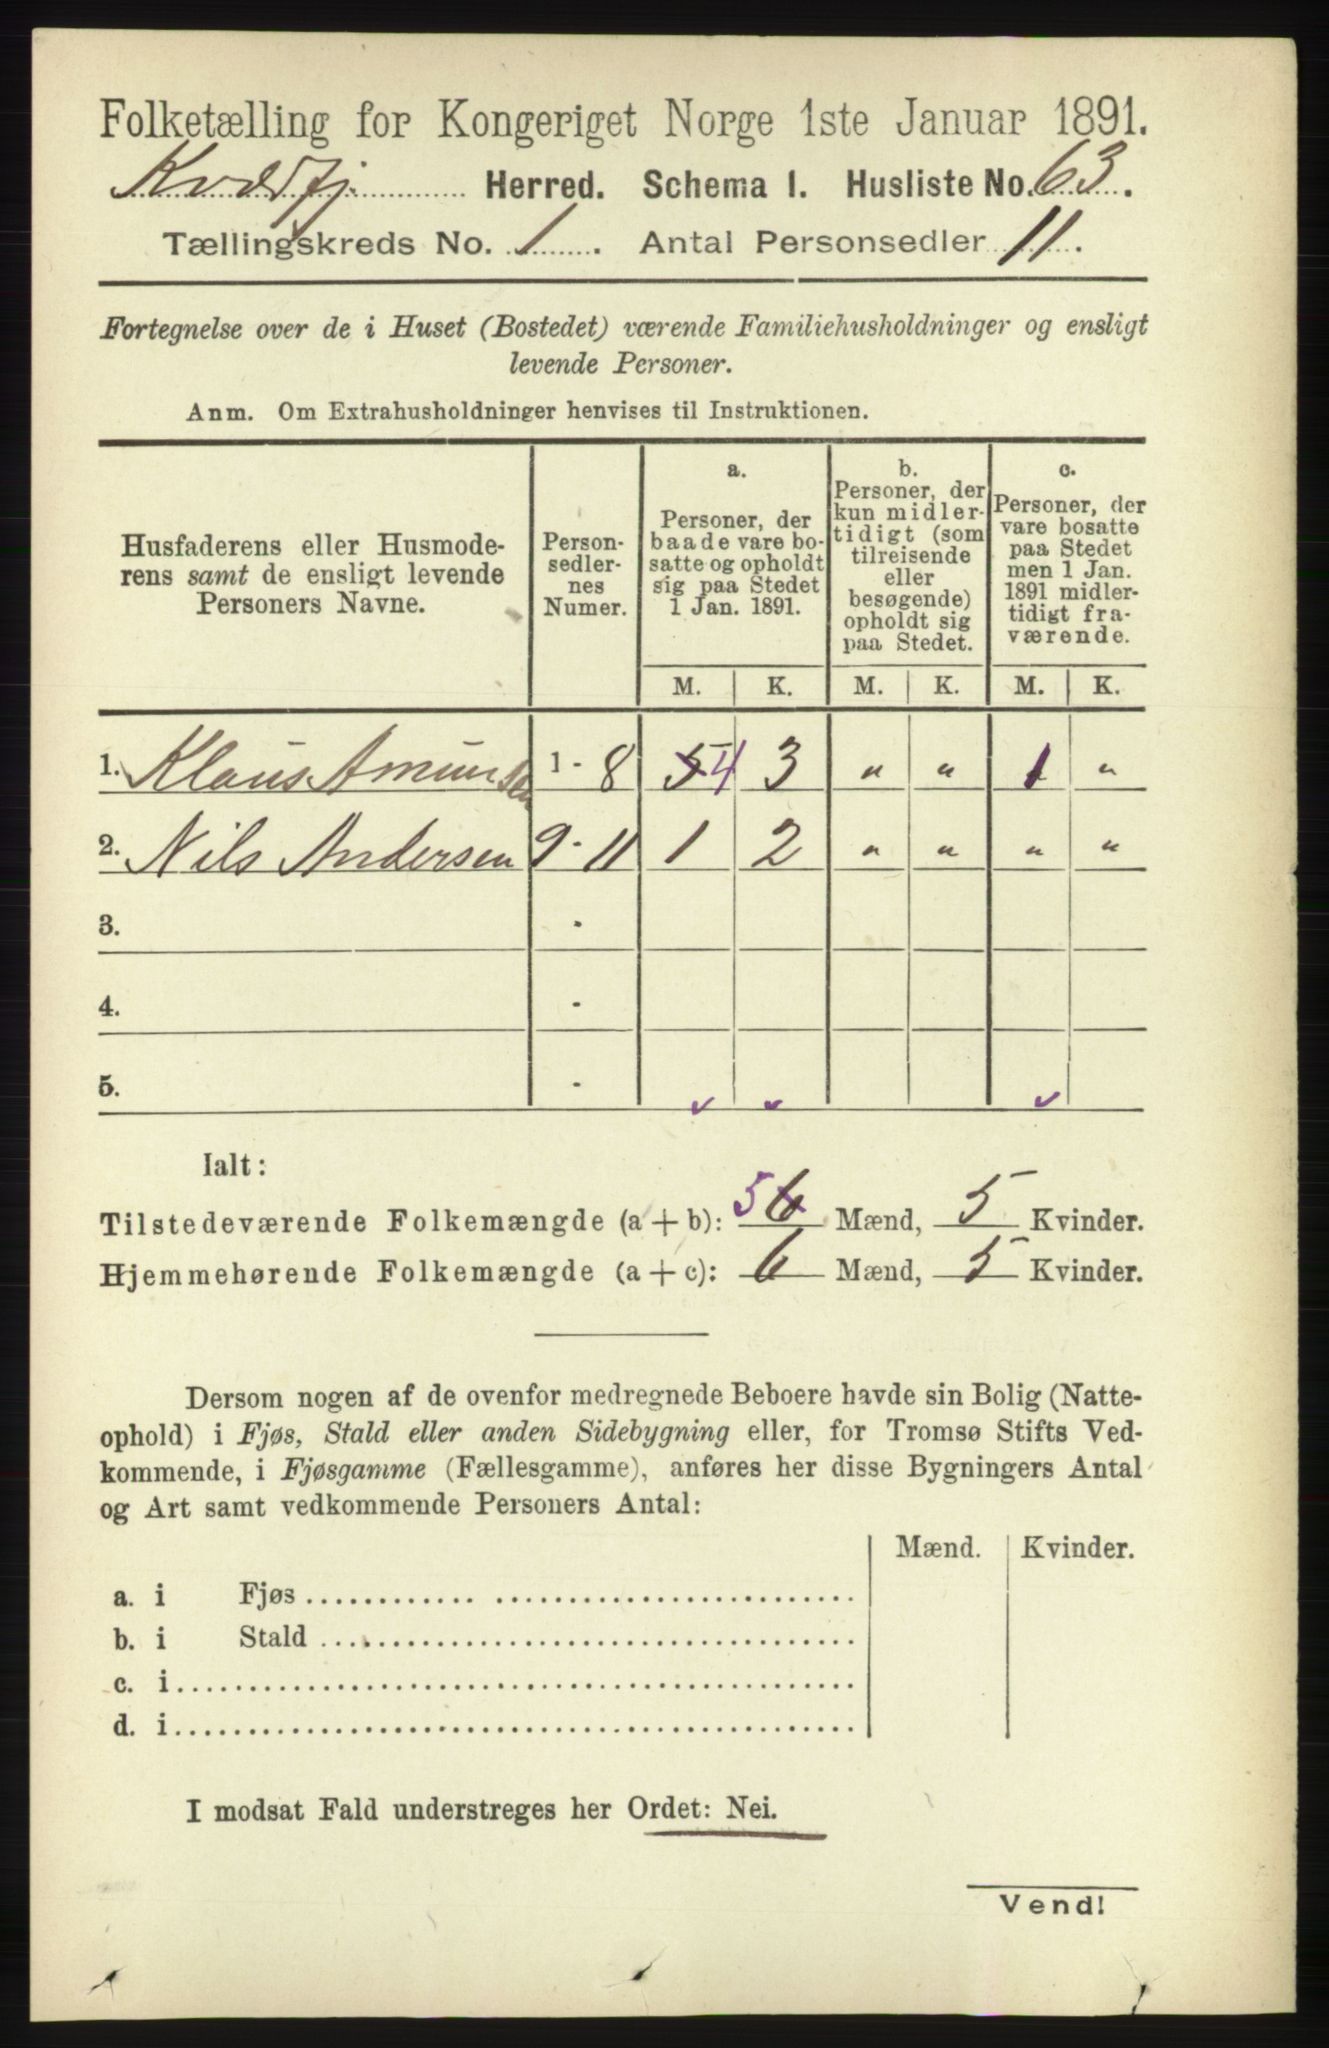 Folketælling for Kongeriget Norge 1ste Januar 1891.
Kvædfj. Herred. Schema I. Husliste No. 63.
Tællingskreds No. 1. Antal Personsedler 11.
Fortegnelse over de i Huset (Bostedet) værende Familiehusholdninger og ensligt
levende Personer.
Anm. Om Extrahusholdninger henvises til Instruktionen.
Husfaderens eller Husmode-
rens samt de ensligt levende
Personers Navne.
Person-
sedler-
nes
Numer.
a.
Personer, der
baade vare bo-
satte og opholdt
sig paa Stedet
1 Jan. 1891.
b.
Personer, der
kun midler-
tidigt (som
tilreisende
eller
besøgende)
opholdt sig
paa Stedet.
c.
Personer, der
vare bosatte
paa Stedet
men 1 Jan.
1891 midler-
tidigt fra-
værende.
M. K. M. K. M. K.
1. Klaus Amunsen 1 - 8 5 4 3 " " 1 "
2. Nils Andersen 9 - 11 1 2 " " " "
3. -
4. -
5. -
Ialt:
Tilstedeværende Folkemængde (a + b): 5 6 Mænd, 5 Kvinder.
Hjemmehørende Folkemængde (a + c): 6 Mænd, 5 Kvinder.
Dersom nogen af de ovenfor medregnede Beboere havde sin Bolig (Natte-
ophold) i Fjøs, Stald eller anden Sidebygning eller, for Tromsø Stifts Ved-
kommende, i Fjøsgamme (Fællesgamme), anføres her disse Bygningers Antal
og Art samt vedkommende Personers Antal:
Mænd. Kvinder.
a. i Fjøs
b. i Stald
c. i
d. i
I modsat Fald understreges her Ordet: Nei.
Vend!